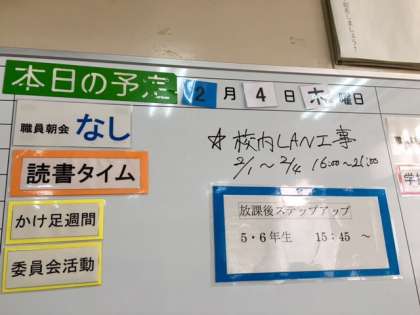 本日の予定 2月4日木曜日
職員朝会 なし
☆校内LAN工事
2/1～2/4 16:00～21:00
読書タイム
放課後ステップアップ
5・6年生 15:45 ～
かけ足週間
委員会活動